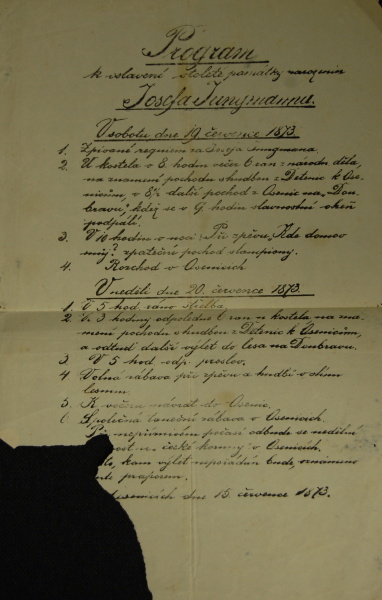 Program
k oslavení stoleté památky narozenin
Josefa Jungmanna.
V sobotu dne 19 července 1873
1. Zpívané requiem za Josefa Jungmana
2. U kostela o 8. hodin večer 6 ran z národn. děla,
na znamení pochodu s hudbou z Dětenic k Ose-
nicům, o 8½ další pochod z Osenic na „Don-
bravu", kdež se o 9. hodin slavnostní oheň
podpálí.
3. V 10 hodin v noci Při zpěvu „Kde domov
můj? zpáteční pochod s lampiony.
4. Rozchod v Osenicích
V neděli dne 20. července 1873.
1. V 5 hod. ráno střelba
2. V 3 hodiny odpoledne 6 ran u kostela na zna-
mení pochodu s hudbou z Dětenic k Osenicům,
a odtud další výlet do lesa na Doubravu.
3 V 5 hod. odp. proslov.
4 Volná zábava při zpěvu a hudbě v
lesem.
5. K večeru návrat do Osenic.
6. Společná taneční zábava v Osenicích.
nepříznivém počasí odbude se nedělní
české koruny v Osenicích.
kam výlet nepořádán bude, oznámeno
praporem.
dne 15. července 1873.